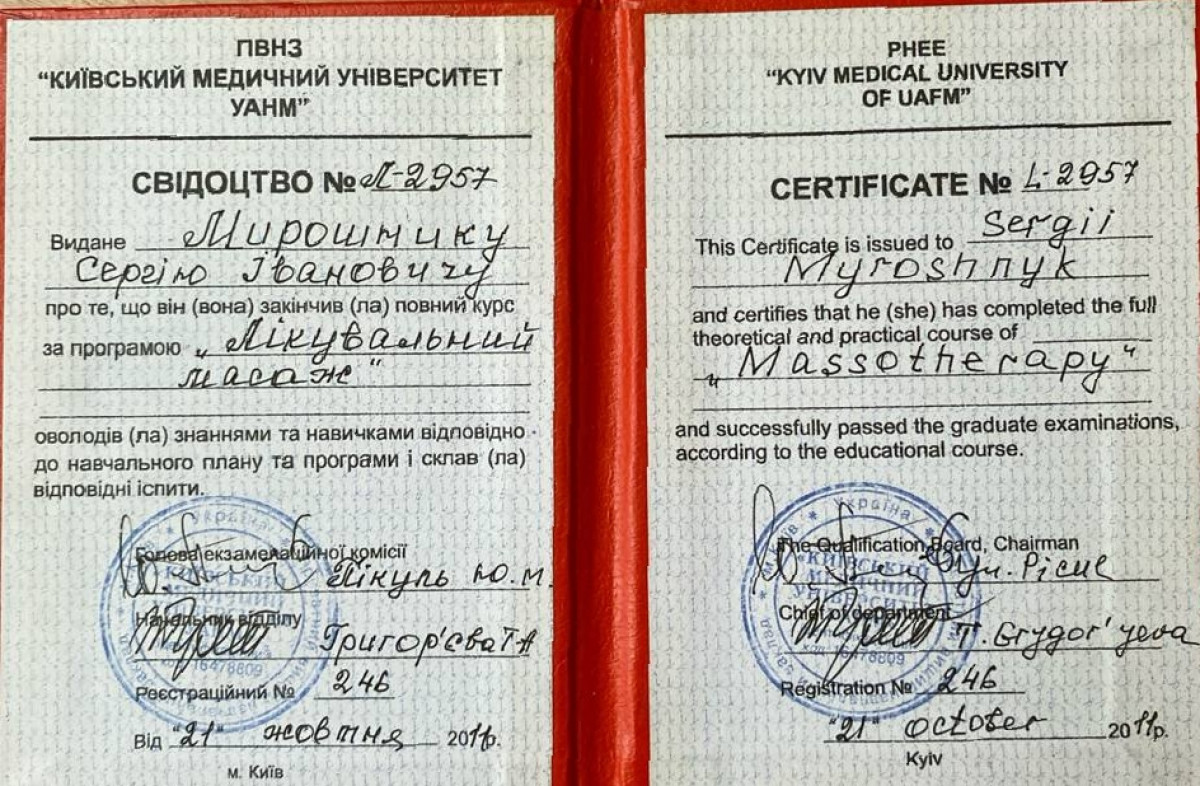 ПВНЗ
“КИЇВСЬКИЙ МЕДИЧНИЙ УНІВЕРСИТЕТ
УАНМ”
СВІДОЦТВО № Л-2957
Видане Мирошнику
Сергію Івановичу
про те, що він (вона) закінчив (ла) повний курс
за програмою „Лікувальний
масаж“
оволодів (ла) знаннями та навичками відповідно
до навчального плану та програми і склав (ла)
відповідні іспити.
Голова екзамелаційної комісії
Пікуль Ю.М.
Начальник відділу
Григор'єва Т А
Реєстраційний № 246
Від "21" жовтня 2011р.
м. Київ
PHEE
“KYIV MEDICAL UNIVERSITY
OF UAFM”
CERTIFICATE № L-2957
This Certificate is issued to Sergii
Myroshnyk
and certifies that he (she) has completed the full
theoretical and practical course of
„Massotherapy“
and successfully passed the graduate examinations,
according to the educational course.
The Qualification Board, Chairman
Chief of department
T. Grygor'yeva
Registration № 246
"21" october 2011р.
Kyiv
Україна
КИЇВСЬКИЙ
МЕДИЧНИЙ
16478809